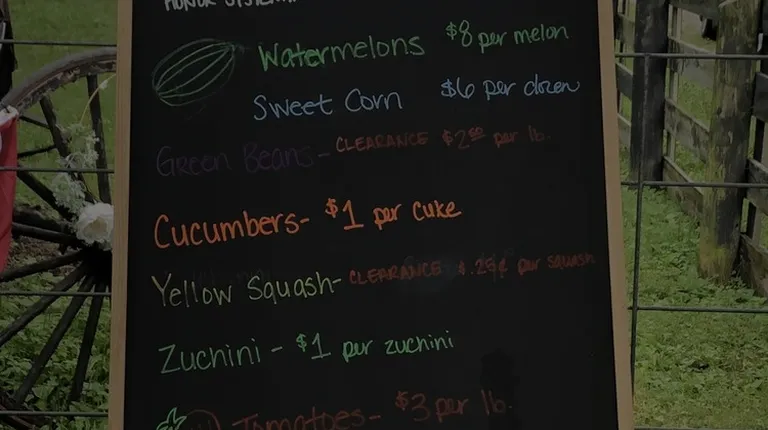 HONOR SYSTEM
Watermelons $8 per melon
Sweet Corn $6 per dozen
Green Beans- CLEARANCE $2.50 per lb.
Cucumbers- $1 per cuke
Yellow Squash- CLEARANCE $.25¢ per squash
Zuchini - $1 per zuchini
Tomatoes- $3 per lb.